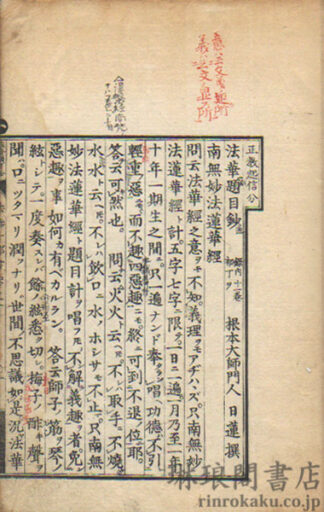 正教起信分
法華題目鈔
根本大師門人 日蓮撰
南無妙法蓮華經
問云法華經之意ヲモ不知義理ヲモアヂハヽズ只南無妙
法蓮華經ト計五字七字ニ限テ一日ニ一遍一月乃至一年
十年一期生之間ニ只一遍ナンド奉唱功德不引
輕重惡而不趣四惡趣ニモ終ニ可到不退位耶
答云可然也 問云火火ト云トモ不取手不燒
水水ト云トモ不飲口水ノホシサモ不止只南無
妙法蓮華經ト題目計ヲ唱フトモ不解義趣者免
惡趣ヲ事如何カ有ベカルラン 答云師子ノ筋ヲ琴ノ
絃トシテ一度奏スレバ餘ノ絃悉ク切ル梅子ノ酢キ聲ヲ
聞バ口ニツタマリ潤フナリ世間ノ不思議如是況法華
琳琅閣書店
rinrokaku.co.jp